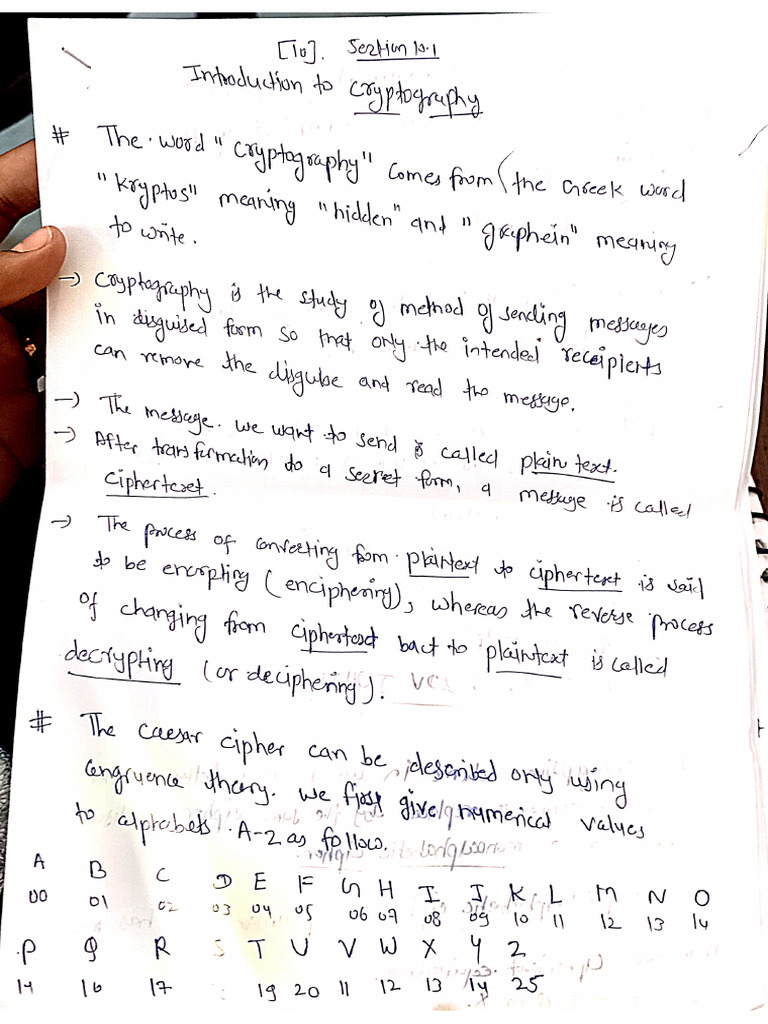 [10]. Section 10.1
Introduction to Cryptography
# The word "Cryptography" comes from the Greek word
"Kryptos" meaning "hidden" and "graphein" meaning
to write.
→ Cryptography is the study of method of sending messages
in disguised form so that only the intended receipients
can remove the disgube and read the message.
→ The message we want to send is called plain text.
→ After transformation do a secret form, a message is called
Ciphertext.
→ The process of converting from plaintext to ciphertext is said
to be encrpting (enciphering), whereas the reverse process
of changing from ciphertext bact to plaintext is called
decrypting (or deciphering).
# The Caesar cipher can be described only using
Congruence theory. We first give numerical values
to alphabets A-Z as follow.
A B C D E F G H I J K L M N O
00 01 02 03 04 05 06 07 08 09 10 11 12 13 14
P Q R S T U V W X Y Z
14 16 17 19 20 11 12 13 14 25